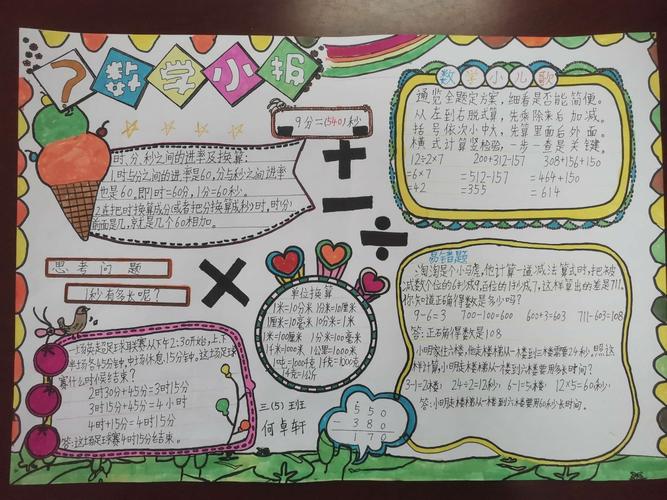 数学小报
9分=(540)秒
时、分、秒之间的进率及换算:
1.时与分之间的进率是60,分与秒之间进率
也是60。即1时=60分,1分=60秒。
2.在把时换算成分(或者把分换算成秒)时,时(分)
前面是几,就是几个60相加。
思考问题
1秒有多长呢?
一场英超足球联赛从下午2:30开始,上下
半场各45分钟,中场休息15分钟,这场足球
赛什么时候结束?
2时30分+45分=3时15分
3时15分+45分=4小时
4时+15分=4时15分
答:这场足球赛4时15分结束。
单位换算
1米=10分米 1分米=10厘米
1厘米=10毫米 10分米=1米
1米=100厘米 1分米=100毫米
1千米=1000米 1公里=1000米
1吨=1000千克 1千克=1000克
1千克=1公斤
三(5)班
何卓轩
550
- 380
170
数学小儿歌
通览全题定方案,细看是否能简便。
从左到右脱式算,先乘除来后加减。
括号依次小中大,先算里面后外面。
横式计算竖检验,一步一查是关键。
12÷2×7 200+312-157 308+156+150
=6×7 =512-157 =464+150
=42 =355 =614
易错题
淘淘是个小马虎,他计算一道减法算式时,把被
减数个位的6抄成9,百位的1抄成7,这样算出的差是711。
你知道正确得数是多少吗?
9-6=3 700-100=600 600+3=603 711-603=108
答:正确得数是108
小明家住六楼,他走楼梯从一楼到三楼需要24秒。照这
样计算,小明走楼梯从一楼到六楼要用多长时间?
3-1=2(楼) 24÷2=12(秒) 6-1=5(楼) 12×5=60(秒)
答:小明走楼梯从一楼到六楼要用60秒长时间。